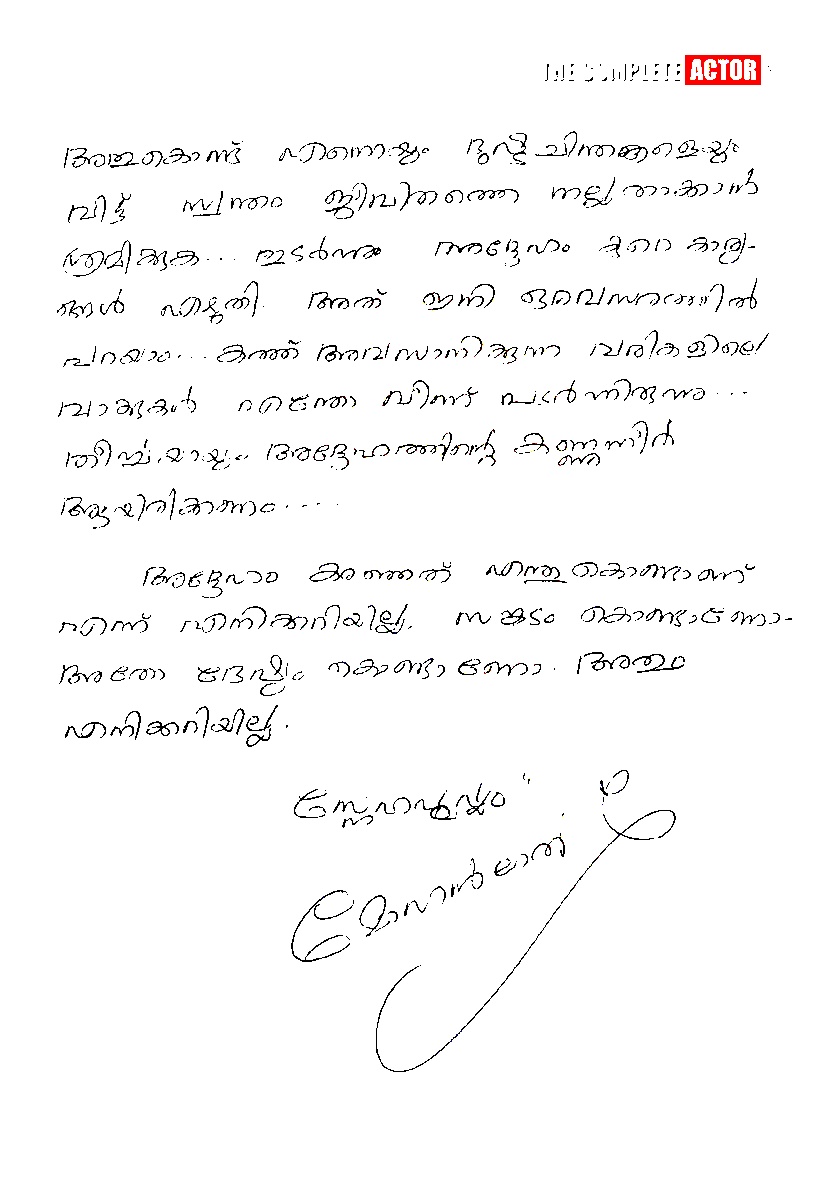 THE COMPLETE ACTOR
അതുകൊണ്ട് എന്നെയും ദുഷ്ട ചിന്തകളെയും
വിട്ട് സ്വന്തം ജീവിതത്തെ നല്ലതാക്കാൻ
ശ്രമിക്കുക... തുടർന്നും അദ്ദേഹം കുറെ കാര്യ-
ങ്ങൾ എഴുതി. അത് ഇനി ഒരവസരത്തിൽ
പറയാം... കത്ത് അവസാനിക്കുന്ന വരികളിലെ
വാക്കുകൾ എന്തോ വീണ് പടർന്നിരുന്നു...
തീർച്ചയായും അദ്ദേഹത്തിന്റെ കണ്ണുനീർ
ആയിരിക്കണം.....
അദ്ദേഹം കരഞ്ഞത് എന്തുകൊണ്ടാണ്
എന്ന് എനിക്കറിയില്ല. സങ്കടം കൊണ്ടാണോ-
അതോ ദ്വേഷ്യം കൊണ്ടാണോ. അതും
എനിക്കറിയില്ല.
സ്നേഹപൂർവ്വം
മോഹൻലാൽ